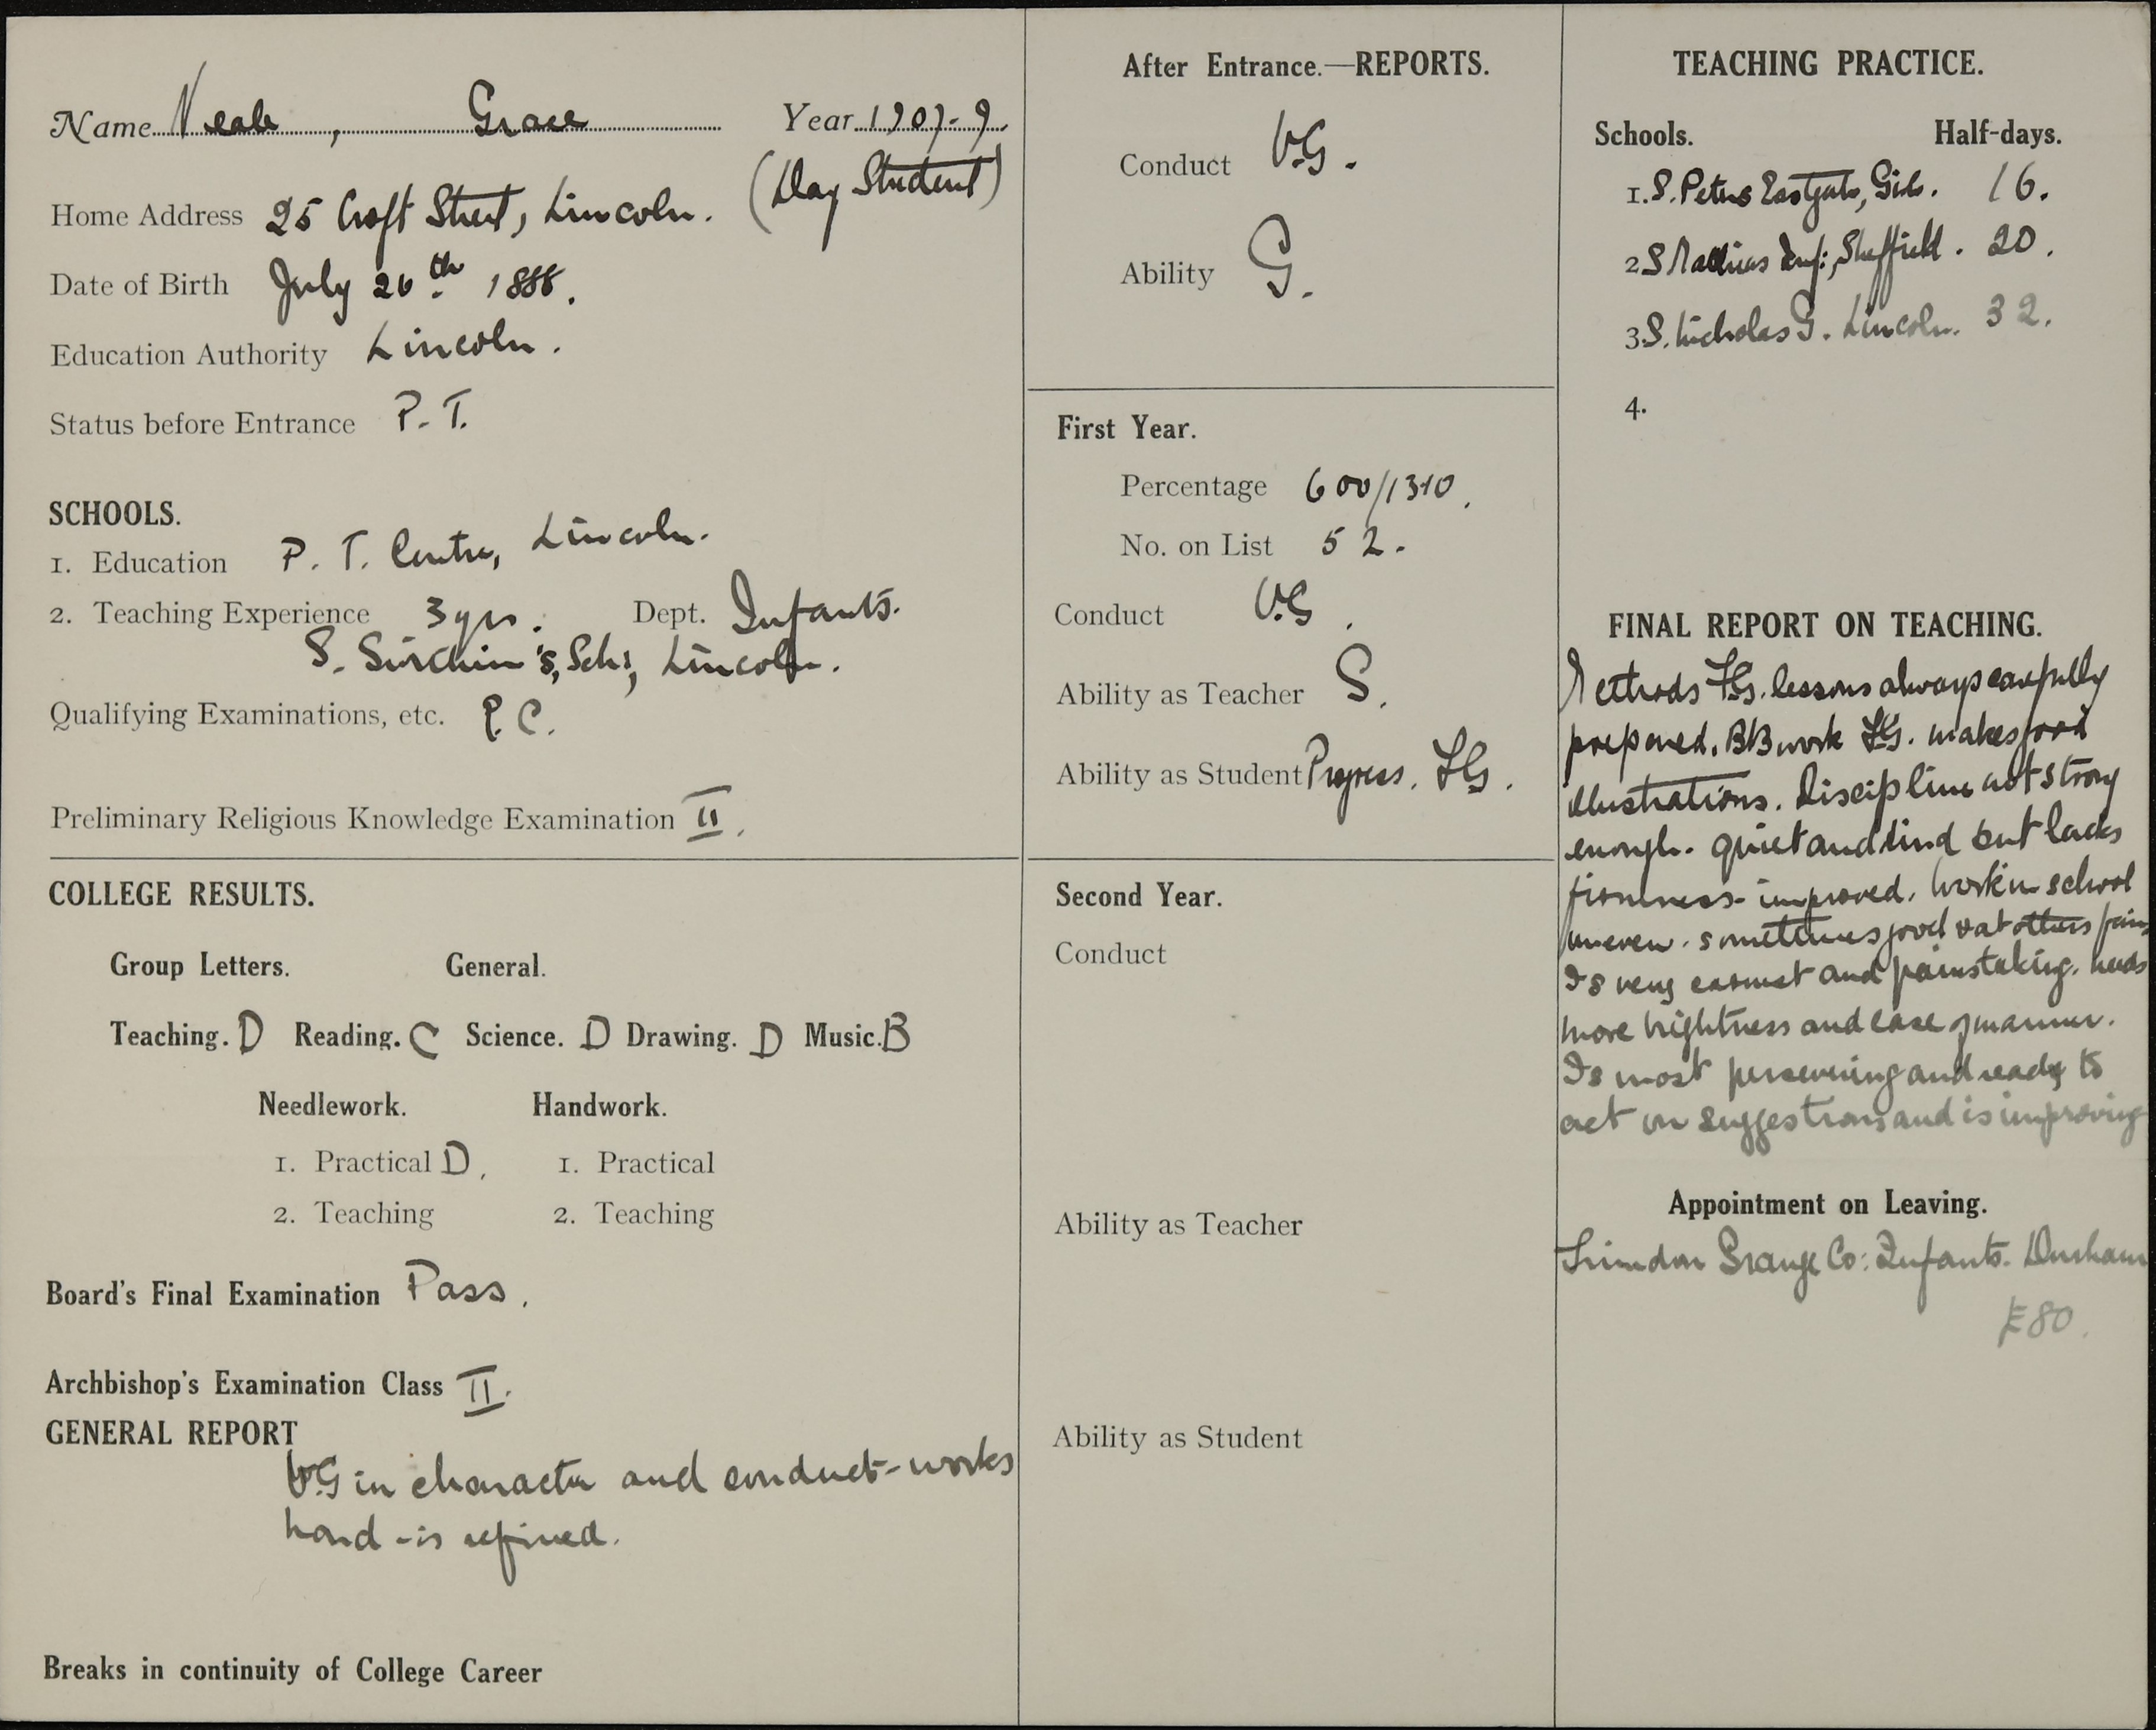 Name Neale, Grace Year 1907-9.
(Day Student)
Home Address 25 Croft Street, Lincoln.
Date of Birth July 26th 1888.
Education Authority Lincoln.
Status before Entrance P.T.
SCHOOLS.
1. Education P. T. Centre, Lincoln.
2. Teaching Experience 3 yrs. Dept. Infants.
S. Swithin's, Sch:, Lincoln.
Qualifying Examinations, etc. P.C.
Preliminary Religious Knowledge Examination II.
COLLEGE RESULTS.
Group Letters. General.
Teaching. D Reading. C Science. D Drawing. D Music. B
Needlework. Handwork.
1. Practical D. 1. Practical
2. Teaching 2. Teaching
Board's Final Examination Pass.
Archbishop's Examination Class II.
GENERAL REPORT
V.G in character and conduct - works
hard - is refined.
Breaks in continuity of College Career
After Entrance.—REPORTS.
Conduct V.G.
Ability G.
First Year.
Percentage 600/1310.
No. on List 52.
Conduct V.G.
Ability as Teacher S.
Ability as Student Progress. F.G.
Second Year.
Conduct
Ability as Teacher
Ability as Student
TEACHING PRACTICE.
Schools. Half-days.
1. S. Peters Eastgate, Girls. 16.
2 S Mathias Inf:, Sheffield. 20.
3. S. Nicholas G. Lincoln. 32.
4.
FINAL REPORT ON TEACHING.
Methods F.G. lessons always carefully
prepared. BB work F.G. makes good
illustrations. Discipline not strong
enough. quiet and kind but lacks
firmness - improved. Work in school
uneven. sometimes good & at others fair
Is very earnest and painstaking. needs
more brightness and ease of manner.
Is most persevering and ready to
act on suggestions and is improving
Appointment on Leaving.
Trimdon Grange Co: Infants. Durham
£80.